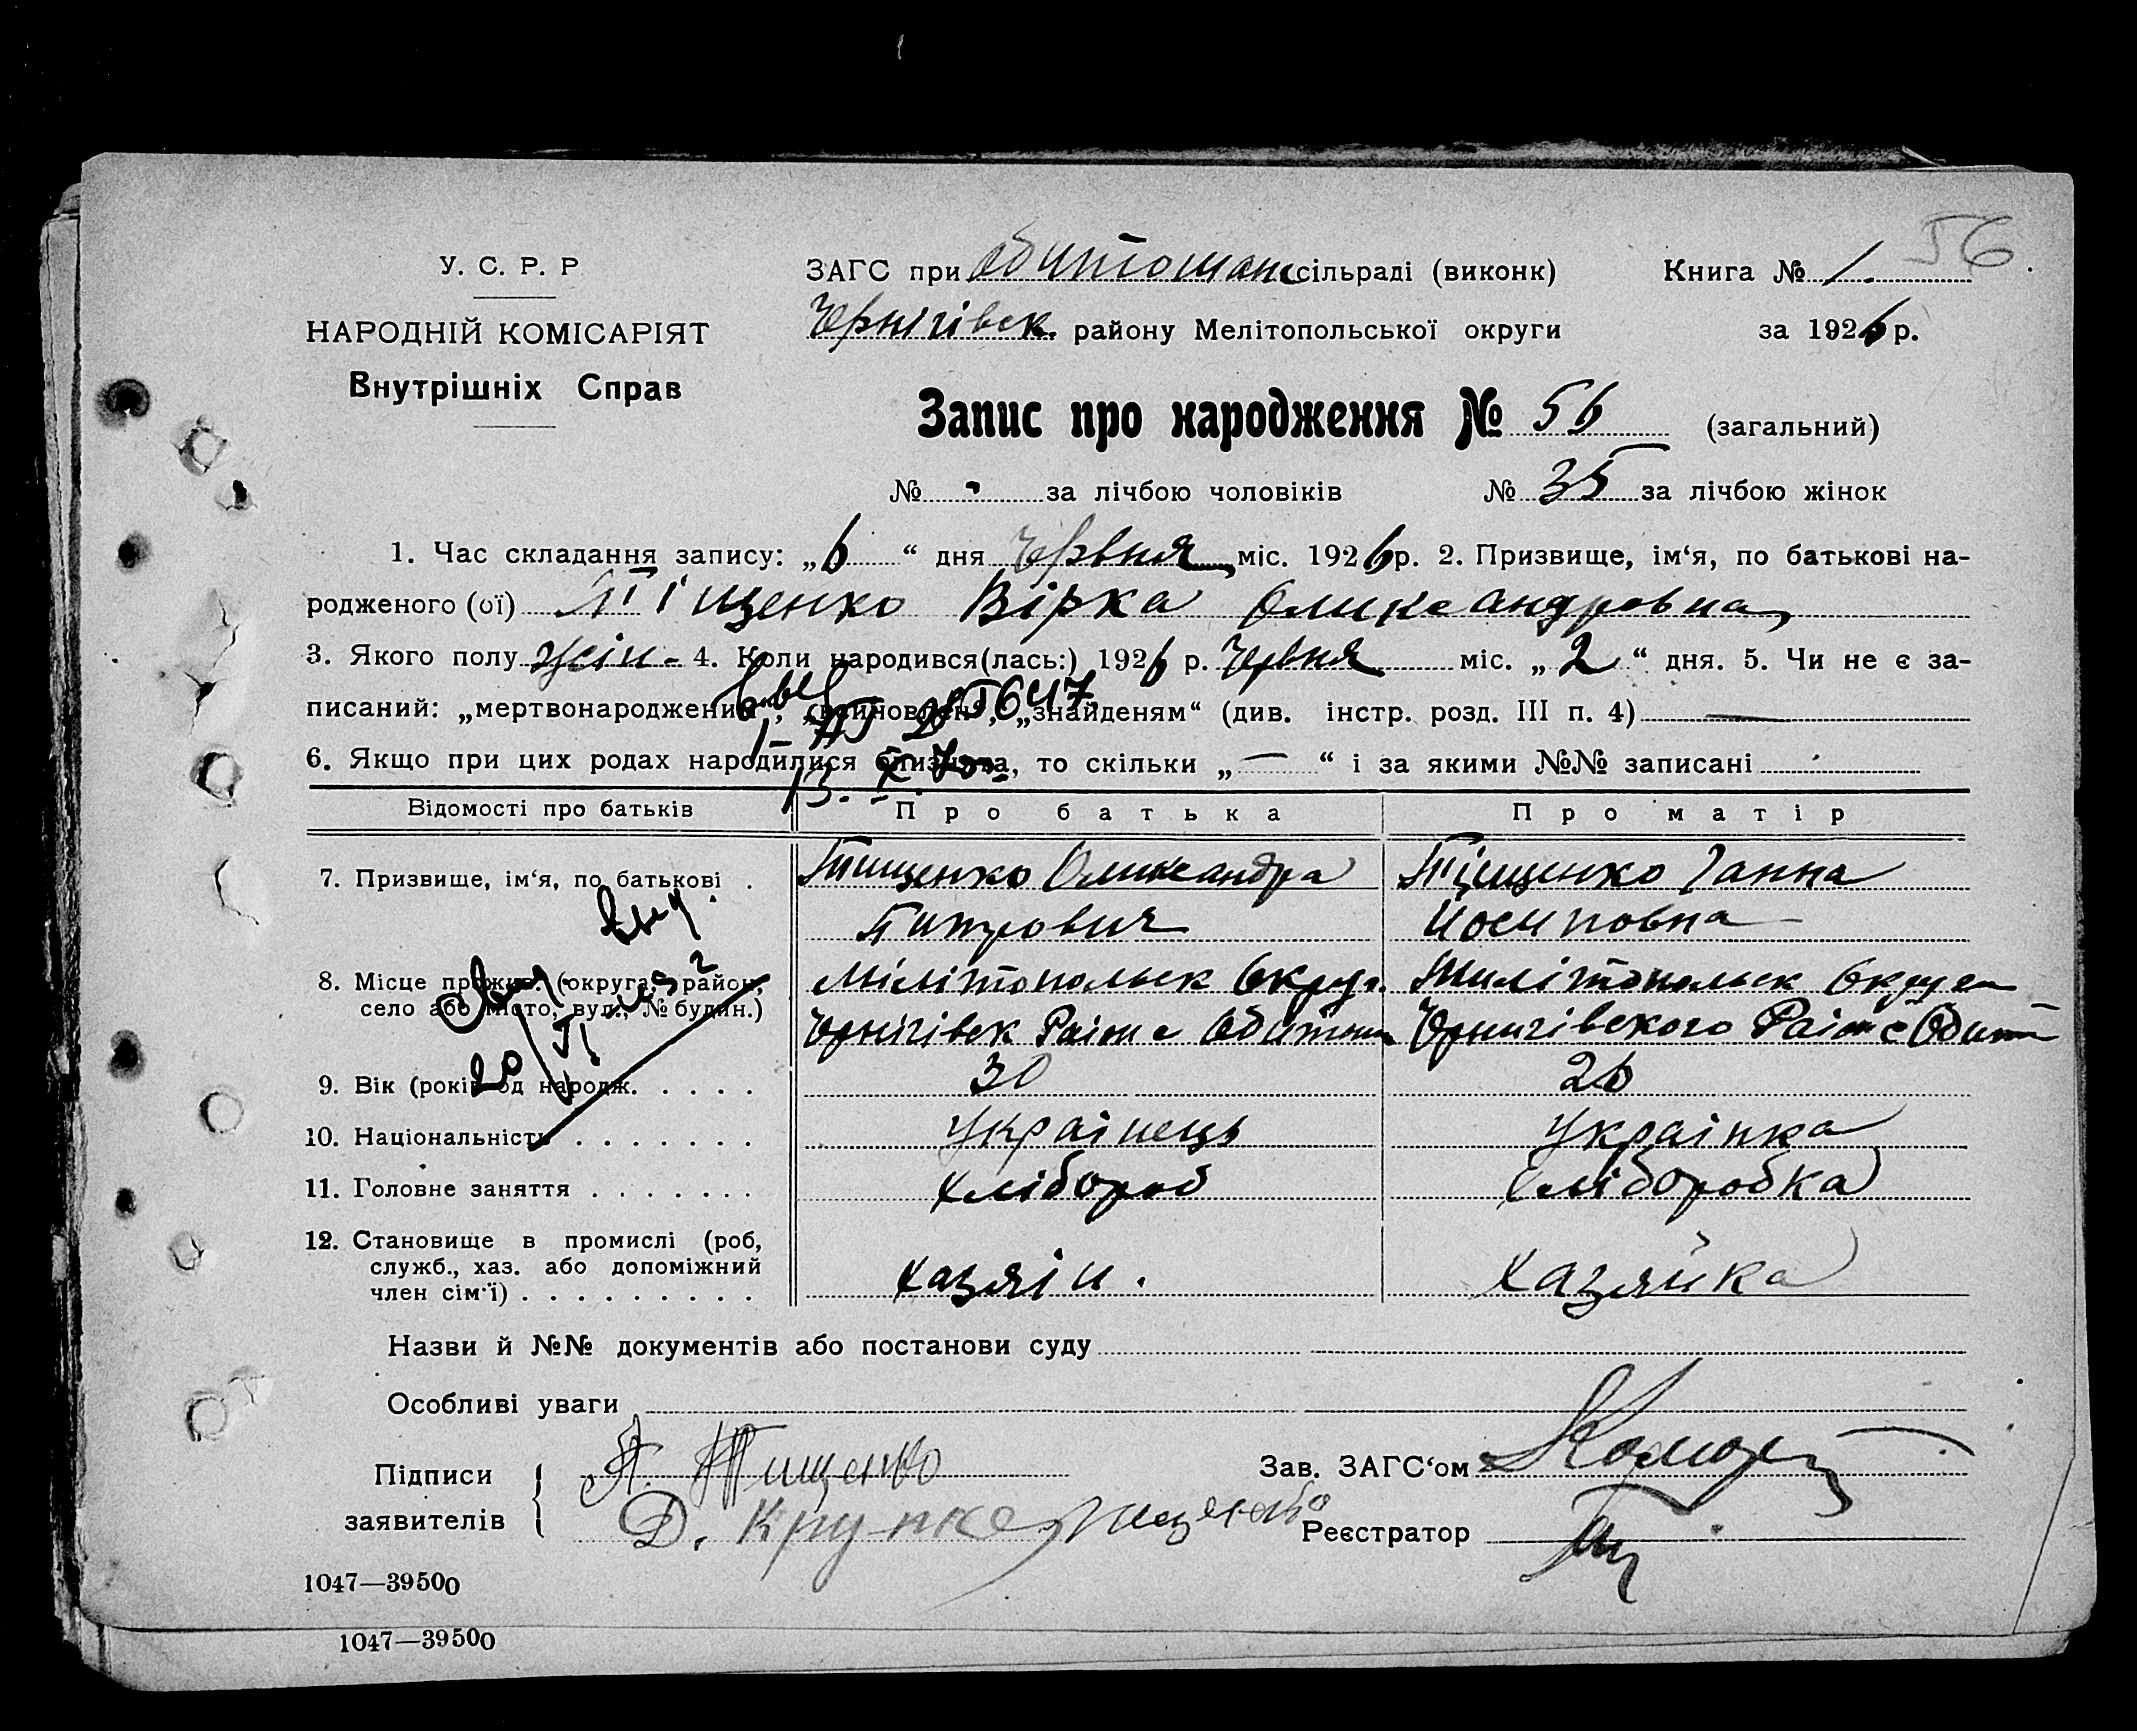 56
У. С. Р. Р
ЗАГС при Обитошан сільраді (виконк) Книга № 1.
НАРОДНІЙ КОМІСАРІЯТ
Чернігівск. району Мелітопольської округи за 1926 р.
Внутрішніх Справ
Запис про народження № 56 (загальний)
№ за лічбою чоловіків № 35 за лічбою жінок
1. Час складання запису: „6 “ дня Червня міс. 1926 р. 2. Призвище, ім‘я, по батькові на-
родженого (ої) Тіщенко Вірка Олександровна
3. Якого полу жін - 4. Коли народився(лась:) 1926 р. Червня міс. „ 2 “ дня. 5. Чи не є за-
писаний: „мертвонароджений“, „ “, „знайденям“ (див. інстр. розд. III п. 4) —
6. Якщо при цих родах народилися близнята, то скільки „ — “ і за якими №№ записані
13. X. 70
Відомості про батьків Про батька Про матір
7. Призвище, ім‘я, по батькові . Тищенко Олександра Тіщенко Ганна
Питрович Йосиповна
8. Місце прожив. (округа, район, Мілітопольск Округ. Милітопольск Округи
село або місто, вул., № будин.) Чернігівск Раіон с Обитош Чернигівского Раіон с Обит
9. Вік (років од народж. . . . . . 30 26
10. Національність . . . . . . . Украінець Украінка
11. Головне заняття . . . . . . . Хлібороб Хліборобка
12. Становище в промислі (роб,
служб., хаз. або допоміжний
член сім‘ї) . . . . . . . . . Хазяін. Хазяйка
Назви й №№ документів або постанови суду
Особливі уваги
Підписи
заявителів
А. Тищенко
Зав. ЗАГС‘ом
Д. Крупке
Реєстратор
1047—39500
1047—39500